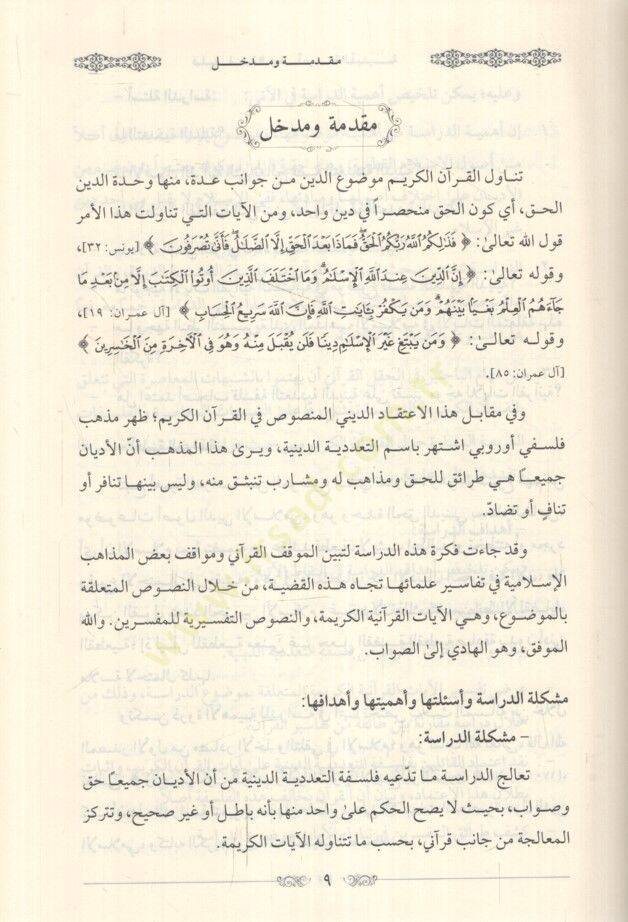 مقدمـــة ومـدخـــل
مقدمة ومدخل
تناول القرآن الكريم موضوع الدين من جوانب عدة، منها وحدة الدين
الحق، أي كون الحق منحصراً في دين واحد، ومن الآيات التي تناولت هذا الأمر
قول الله تعالىٰ: ﴿ فَذَٰلِكُمُ ٱللَّهُ رَبُّكُمُ ٱلْحَقُّ ۖ فَمَاذَا بَعْدَ ٱلْحَقِّ إِلَّا ٱلضَّلَٰلُ ۖ فَأَنَّىٰ تُصْرَفُونَ ﴾ [يونس: ٣٢]،
وقوله تعالىٰ: ﴿ إِنَّ ٱلدِّينَ عِندَ ٱللَّهِ ٱلْإِسْلَٰمُ ۗ وَمَا ٱخْتَلَفَ ٱلَّذِينَ أُوتُوا۟ ٱلْكِتَٰبَ إِلَّا مِنۢ بَعْدِ مَا
جَآءَهُمُ ٱلْعِلْمُ بَغْيًۢا بَيْنَهُمْ ۗ وَمَن يَكْفُرْ بِـَٔايَٰتِ ٱللَّهِ فَإِنَّ ٱللَّهَ سَرِيعُ ٱلْحِسَابِ ﴾ [آل عمران: ١٩]،
وقوله تعالىٰ: ﴿ وَمَن يَبْتَغِ غَيْرَ ٱلْإِسْلَٰمِ دِينًا فَلَن يُقْبَلَ مِنْهُ وَهُوَ فِى ٱلْـَٔاخِرَةِ مِنَ ٱلْخَٰسِرِينَ ﴾
[آل عمران: ٨٥].
وفي مقابل هذا الاعتقاد الديني المنصوص في القرآن الكريم؛ ظهر مذهب
فلسفي أوروبي اشتهر باسم التعددية الدينية، ويرىٰ هذا المذهب أنّ الأديان
جميعـًا هي طرائق للحق ومذاهب له ومشارب تنبثق منه، وليس بينها تنافر أو
تنافٍ أو تضادّ.
وقد جاءت فكرة هذه الدراسة لتبين الموقف القرآني ومواقف بعض المذاهب
الإسلامية في تفاسير علمائها تجاه هذه القضية، من خلال النصوص المتعلقة
بالموضوع، وهي الآيات القرآنية الكريمة، والنصوص التفسيرية للمفسرين. والله
الموفق، وهو الهادي إلىٰ الصواب.
مشكلة الدراسة وأسئلتها وأهميتها وأهدافها:
- مشكلة الدراسة:
تعالج الدراسة مـا تدّعيه فلسفة التعددية الدينية من أن الأديان جميعـًا حق
وصواب، بحيث لا يصح الحكم علىٰ واحد منها بأنه باطل أو غير صحيح، وتتركز
المعالجة من جانب قرآني، بحسب ما تتناوله الآيات الكريمة.
٩